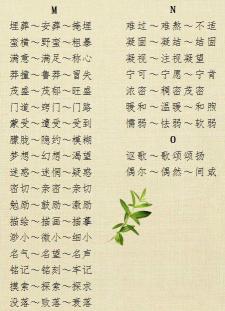 M
埋葬～安葬～掩埋
蛮横～野蛮～粗暴
满意～满足～称心
莽撞～鲁莽～冒失
茂盛～茂郁～旺盛
门道～窍门～门路
蒙受～遭受～受到
朦胧～隐约～模糊
梦想～幻想～渴望
迷惑～迷惘～疑惑
密切～亲密～亲切
勉励～鼓励～激励
描绘～描画～描摹
渺小～微小～细小
名气～名望～名声
铭记～铭刻～牢记
摸索～探索～探求
没落～败落～衰落
N
难过～难熬～不适
凝固～凝结～结固
凝视～注视凝望
宁可～宁愿～宁肯
浓密～稠密茂密
暖和～温暖～和煦
懦弱～怯弱～软弱
O
讴歌～歌颂颂扬
偶尔～偶然～间或